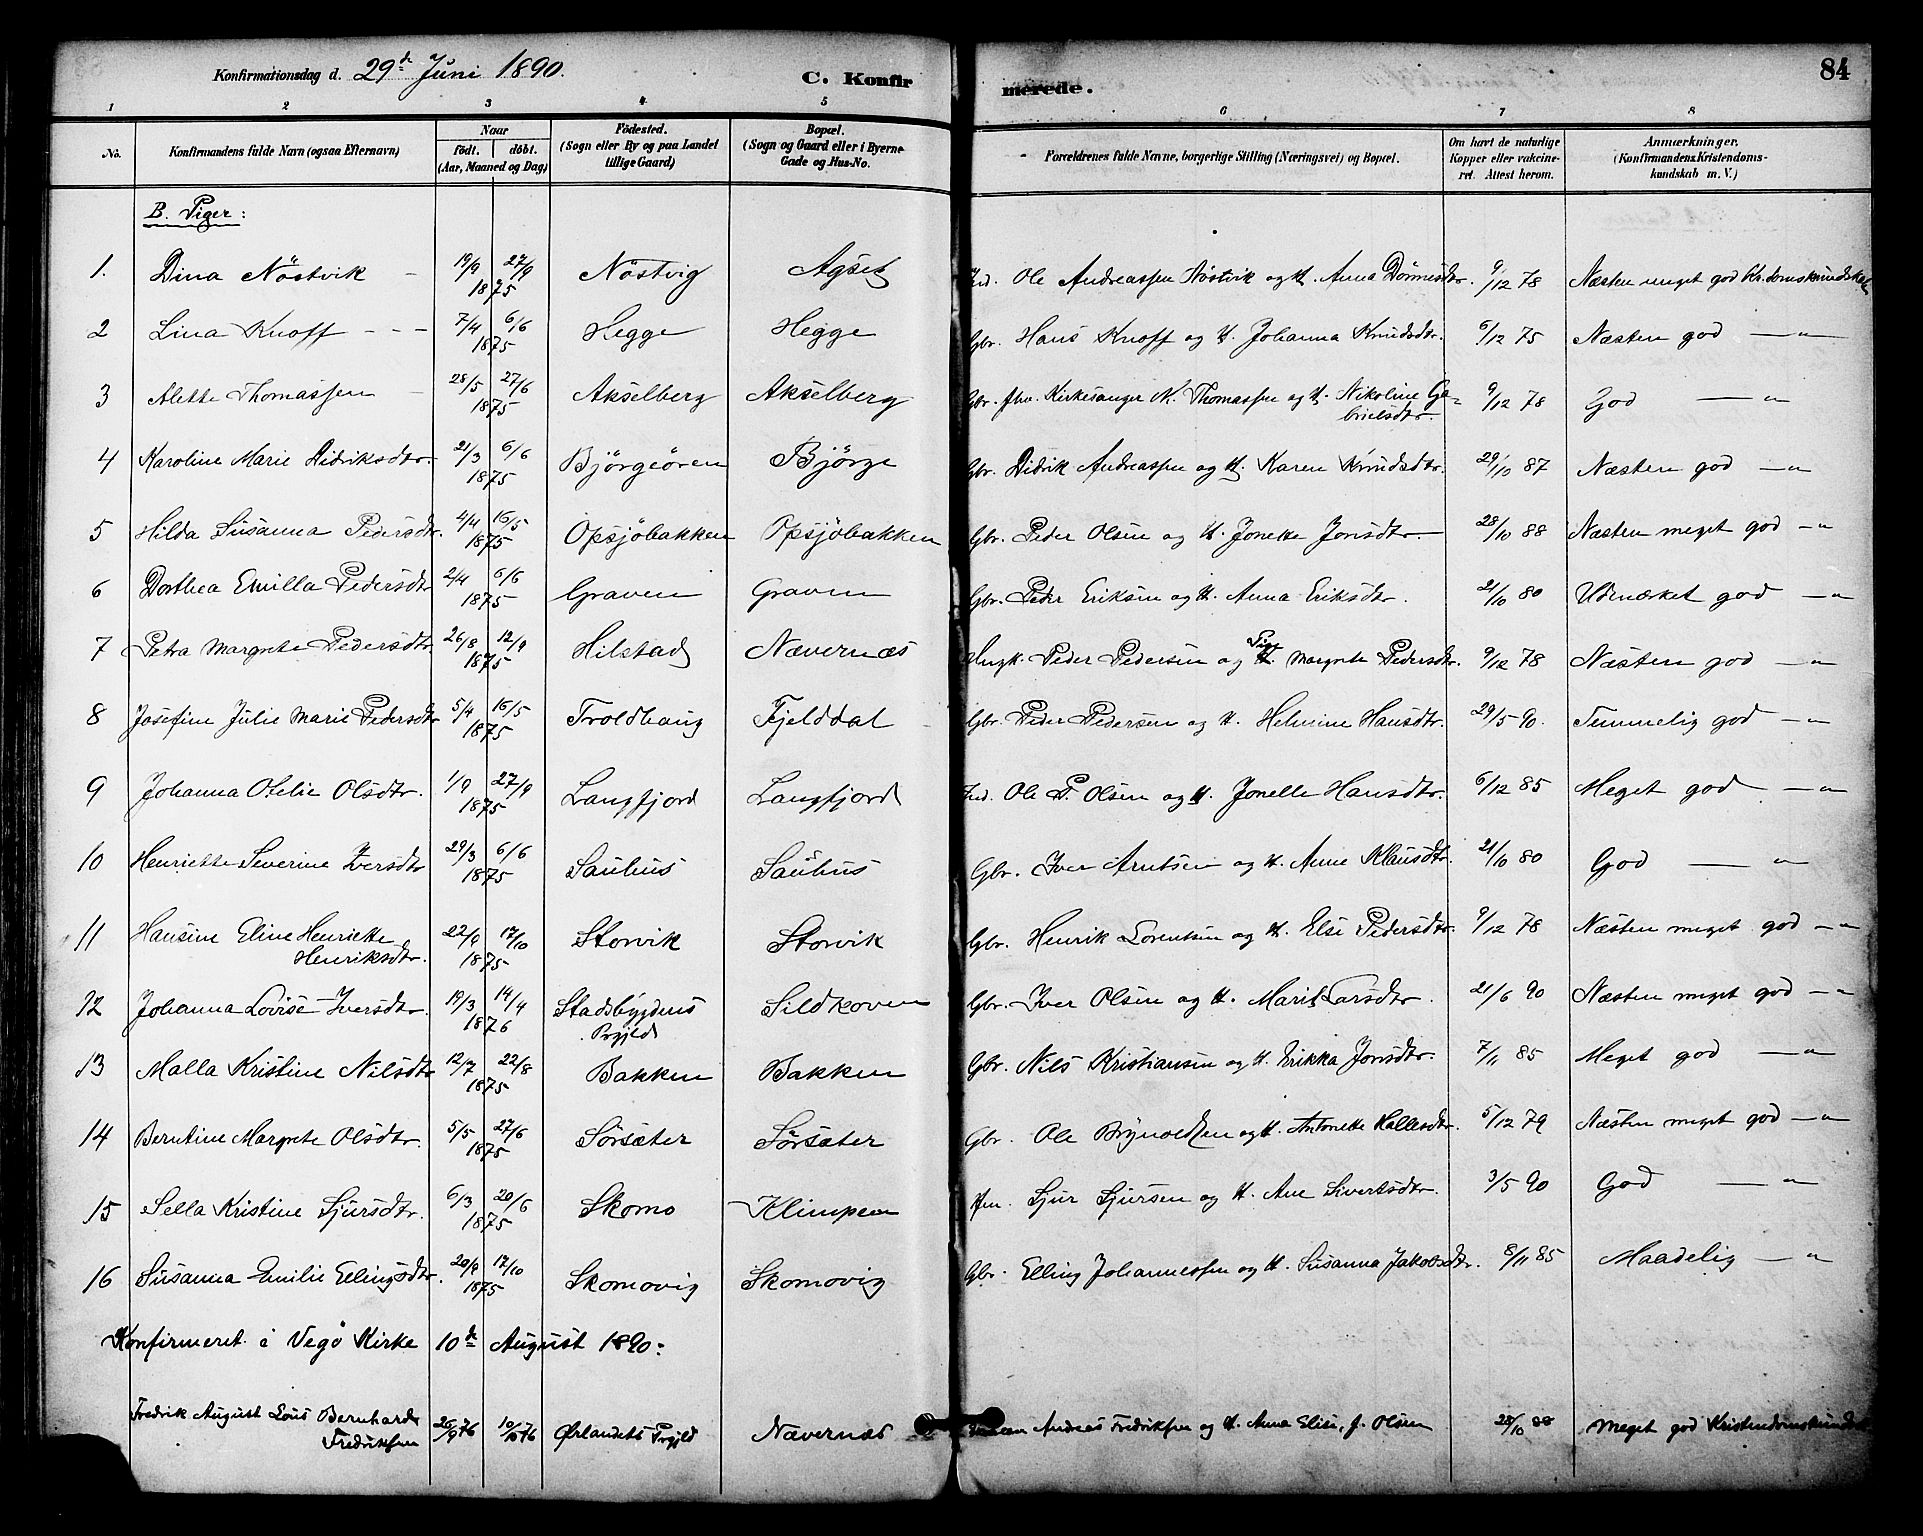 Konfirmationsdag d. 29de Juni 1890. C. Konfirmerede. 84
1 2 3 4 5 6 7 8
No. Konfirmandens fulde Navn (ogsaa Efternavn) Naar født. døbt. (Aar, Maaned og Dag) Fødested. (Sogn eller By og paa Landet tillige Gaard) Bopæl. (Sogn og Gaard eller i Byerne Gade og Hus-No. Forældrenes fulde Navne, borgerlige Stilling (Næringsvei) og Bopæl. Om havt de naturlige Kopper eller vakcineret. Attest herom. Anmærkninger. (Konfirmandens Kristendomskundskab m. V.)
B. Piger:
1. Dina Nöstvik 19/9 27/9 1875 Nöstvig Agset Ind. Ole Andreassen Nöstvik og H. Anna Dönnesdtr. 9/12 78 Næsten meget god Kr.domskundskab
2 Lina Knoff - - - 7/4 6/6 1875 Hegge Hegge Gbr. Hans Knoff og H. Johanna Knudsdtr. 6/12 75 Næsten god — „
3 Alette Thomassen 28/5 27/6 1875 Akselberg Akselberg Gbr. fhv. Kirkesanger N. Thomassen og H. Nikoline Gabrielsdtr. 9/12 78 God — „
4 Karoline Marie Didriksdtr. 21/3 6/6 1875 Björgeören Björge Gbr. Didrik Andreassen og H. Karen Knudsdtr. 29/10 87 Næsten god — „
5 Hilda Susanna Pedersdtr. 4/4 16/5 1875 Opsjöbakken Opsjöbakken Gbr. Peder Olsen og H. Jonette Jonsdtr. 28/10 88 Næsten meget god — „
6 Dorthea Emilla Pedersdtr 2/4 6/6 1875 Graven Graven Gbr. Peder Eriksen og H. Anna Eriksdtr. 21/10 80 Udmærket god — „
7 Petra Margrete Pedersdtr. 26/8 12/9 1875 Hilstad Nævernæs Ungk. Peder Pedersen og Pige Margrete Pedersdtr. 9/12 78 Næsten god — „
8 Josefine Julie Marie Pedersdtr 5/4 16/5 1875 Troldhaug Fjelddal Gbr. Peder Pedersen og H. Helmine Hansdtr. 29/5 90. Temmelig god — „
9 Johanna Otelie Olsdtr. 1/9 27/9 1875 Langfjord Langfjord Ind. Ole P. Olsen og H. Jonelle Hansdtr. 6/12 85 Meget god — „
10 Henriette Severine Iversdtr 29/3 6/6 1875 Sauhus Sauhus Gbr. Iver Arntsen og H. Anne Klausdtr. 21/10 80 God — „
11 Hansine Eline Henriette Henriksdtr. 22/9 17/10 1875 Storvik Storvik Gbr. Henrik Lorentsen og H. Else Pedersdtr. 9/12 78 Næsten meget god — „
12 Johanna Lovise Iversdtr. 19/3 14/4 1876 Stadsbygdens Prgjld Sildkoven Gbr. Iver Olsen og H. Marit Larsdtr. 21/6 90 Næsten meget god — „
13 Malla Kristine Nilsdtr 12/7 22/8 1875 Bakken Bakken Gbr. Nils Kristiansen og H. Erikka Jonsdtr. 7/11 85 Meget god — „
14 Berntine Margrete Olsdtr. 5/5 27/6 1875 Sörsæter Sörsæter Gbr. Ole Brynoldsen og H. Antonette Kallesdtr. 5/12 79 Næsten meget god — „
15 Sella Kristine Sjursdtr. 6/3 20/6 1875 Skomo Klimpen Sjur Sjursen og H. Ane Sivertsdtr. 3/5 90 God — „
16 Susanna Emilie Ellingsdtr. 20/9 17/10 1875 Skomovig Skomovig Gbr. Elling Johannessen og H. Susanna Jakobsdtr. 8/11 85 Maadelig — „
Konfirmeret i Vegö Kirke 10de August 1890:
Fredrik August Louis Bernhard Fredriksen 26/9 76 10/10 76 Ørlandets Prgjld Nævernæs Andreas Fredriksen og H. Anna Elise, f. Olsen 28/10 88 Meget god Kristendomskundskab